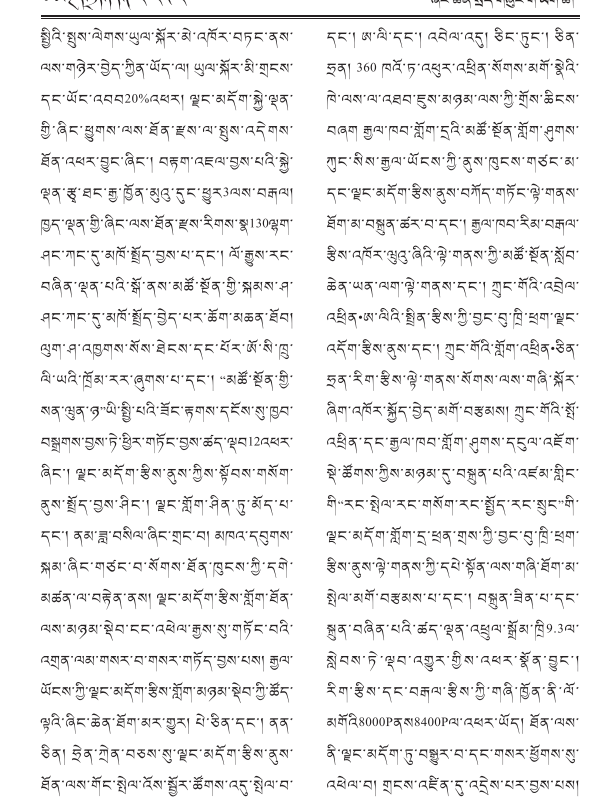 སྤྱིའི་སྤུས་ལེགས་ཡུལ་སྐོར་མི་འཁོར་བཏང་ནས་
ལས་གཉེར་བྱེད་ཀྱིན་ཡོད་ལ། ཡུལ་སྐོར་མི་གྲངས་
དང་ཡོང་འབབ20%འཕར། ལྗང་མདོག་སྐྱེ་ལྡན་
གྱི་ཞིང་ཕྱུགས་ལས་ཐོན་རྫས་ལ་སྤུས་འདེགས་
ཐོན་འཕར་བྱུང་ཞིང་། བརྟག་འཇལ་བྱས་པའི་སྐྱེ་
ལྡན་རྩྭ་ཐང་རྒྱ་ཁྱོན་མུའུ་དུང་ཕྱུར3ལས་བརྒལ།
ཁྱད་ལྡན་གྱི་ཞིང་ལས་ཐོན་རྫས་རིགས་སྣ130ལྷག་
ཤང་ཀང་དུ་མཁོ་སྤྲོད་བྱས་པ་དང་། ལོ་རྒྱུས་རང་
བཞིན་ལྡན་པའི་སྒོ་ནས་མཚོ་སྔོན་གྱི་སྐམས་ཤ་
ཤང་ཀང་དུ་མཁོ་སྤྲོད་བྱེད་པར་ཆོག་མཆན་ཐོབ།
ལུག་ཤ་འཁྱགས་སོས་ཐེངས་དང་པོར་ཨོ་སི་ཁྲུ་
ལི་ཡའི་ཁྲོམ་རར་ཞུགས་པ་དང་། “མཚོ་སྔོན་གྱི་
སན་ལྦུན་ཉ”ཡི་སྤྱི་པའི་ཟོང་རྟགས་དངོས་སུ་ཁྱབ་
བསྒྲགས་བྱས་ཏེ་ཕྱིར་གཏོང་བྱས་ཚད་ལྡབ12འཕར་
ཞིང་། ལྗང་མདོག་རྩིས་ནུས་ཀྱིས་སྟོབས་གསོག་
ནུས་སྤྲོད་བྱས་ཤིང་། ལྗང་གློག་ཤིན་ཏུ་མོད་པ་
དང་། ནམ་ཟླ་བསིལ་ཞིང་གྲང་བ། མཁའ་དབུགས་
སྐམ་ཞིང་གཙང་བ་སོགས་ཐོན་ཁུངས་ཀྱི་དགེ་
མཚན་ལ་བརྟེན་ནས། ལྗང་མདོག་རྩིས་གློག་ཐོན་
ལས་མཉམ་སྡེབ་ངང་འཕེལ་རྒྱས་སུ་གཏོང་བའི་
འགྲན་ལམ་གསར་བ་གསར་གཏོད་བྱས་པས། རྒྱལ་
ཡོངས་ཀྱི་ལྗང་མདོག་རྩིས་གློག་མཉམ་སྡེབ་ཀྱི་ཚོད་
ལྟའི་ཞིང་ཆེན་ཐོག་མར་གྱུར། པེ་ཅིན་དང་། ནན་
ཅིན། ཧྲེན་ཀྲེན་བཅས་སུ་ལྗང་མདོག་རྩིས་ནུས་
ཐོན་ལས་གོང་སྤེལ་འོས་སྦྱོར་ཚོགས་འདུ་སྤེལ་བ་
དང་། ཨ་ལི་དང་། འབེལ་འདྲ། ཅིང་ཏུང་། ཅིན་
ཧྲན། 360 ཁའོ་ཏ་འཕུར་འཕྲིན་སོགས་མགོ་སྣེའི་
ཁེ་ལས་ལ་འཐབ་ཇུས་མཉམ་ལས་ཀྱི་གྲོས་ཆིངས་
བཞག རྒྱལ་ཁབ་གློག་དྲའི་མཚོ་སྔོན་གློག་ཤུགས་
ཀུང་སིས་རྒྱལ་ཡོངས་ཀྱི་ནུས་ཁུངས་གཙང་མ་
དང་ལྗང་མདོག་རྩིས་ནུས་བཀོད་གཏོང་ལྟེ་གནས་
ཐོག་མ་བསྐྲུན་ཚར་བ་དང་། རྒྱལ་ཁབ་རིམ་བརྒལ་
རྩིས་འཁོར་ཝུའུ་ཞིའི་ལྟེ་གནས་ཀྱི་མཚོ་སྔོན་སློབ་
ཆེན་ཡན་ལག་ལྟེ་གནས་དང་། ཀྲུང་གོའི་འབྲེལ་
འཕྲིན•ཨ་ལིའི་སྤྲིན་རྩིས་ཀྱི་བྱང་བུ་ཁྲི་ཕྲག་ལྗང་
འདོག་རྩིས་ནུས་དང་། ཀྲུང་གོའི་གློག་འཕྲིན•ཅིན་
ཧྲན་རིག་རྩིས་ལྟེ་གནས་སོགས་ལས་གཞི་སྐོར་
ཞིག་འཁོར་སྐྱོད་བྱེད་མགོ་བརྩམས། ཀྲུང་གོའི་སྤོ་
འཕྲིན་དང་རྒྱལ་ཁབ་གློག་ཤུགས་དངུལ་འཇོག་
སྡེ་ཚོགས་ཀྱིས་མཉམ་དུ་བསྐྲུན་པའི་འཛམ་གླིང་
གི“རང་སྤེལ་རང་གསོག་རང་སྤྱོད་རང་སྲུང”གི་
ལྗང་མདོག་གློག་དྲ་ཕྲན་གྲས་ཀྱི་བྱང་བུ་ཁྲི་ཕྲག་
རྩིས་ནུས་ལྟེ་གནས་ཀྱི་དཔེ་སྟོན་ལས་གཞི་ཐོག་མ་
སྤེལ་མགོ་བརྩམས་པ་དང་། བསྐྲུན་ཟིན་པ་དང་
སྐྲུན་བཞིན་པའི་ཚད་ལྡན་འཕྲུལ་སྒྲོམ་ཁྲི9.3ལ་
སླེབས་ཏེ་ལྡབ་འགྱུར་གྱིས་འཕར་སྣོན་བྱུང་།
རིག་རྩིས་དང་བརྒལ་རྩིས་ཀྱི་གཞི་ཁྱོན་ནི་ལོ་
མགོའི8000Pནས8400Pལ་འཕར་ཡོད། ཐོན་ལས་
ནི་ལྗང་མདོག་ཏུ་བསྒྱུར་བ་དང་གསར་ཕྱོགས་སུ་
འཕེལ་བ། གྲངས་འཛིན་དུ་འདྲེས་པར་བྱས་པས།